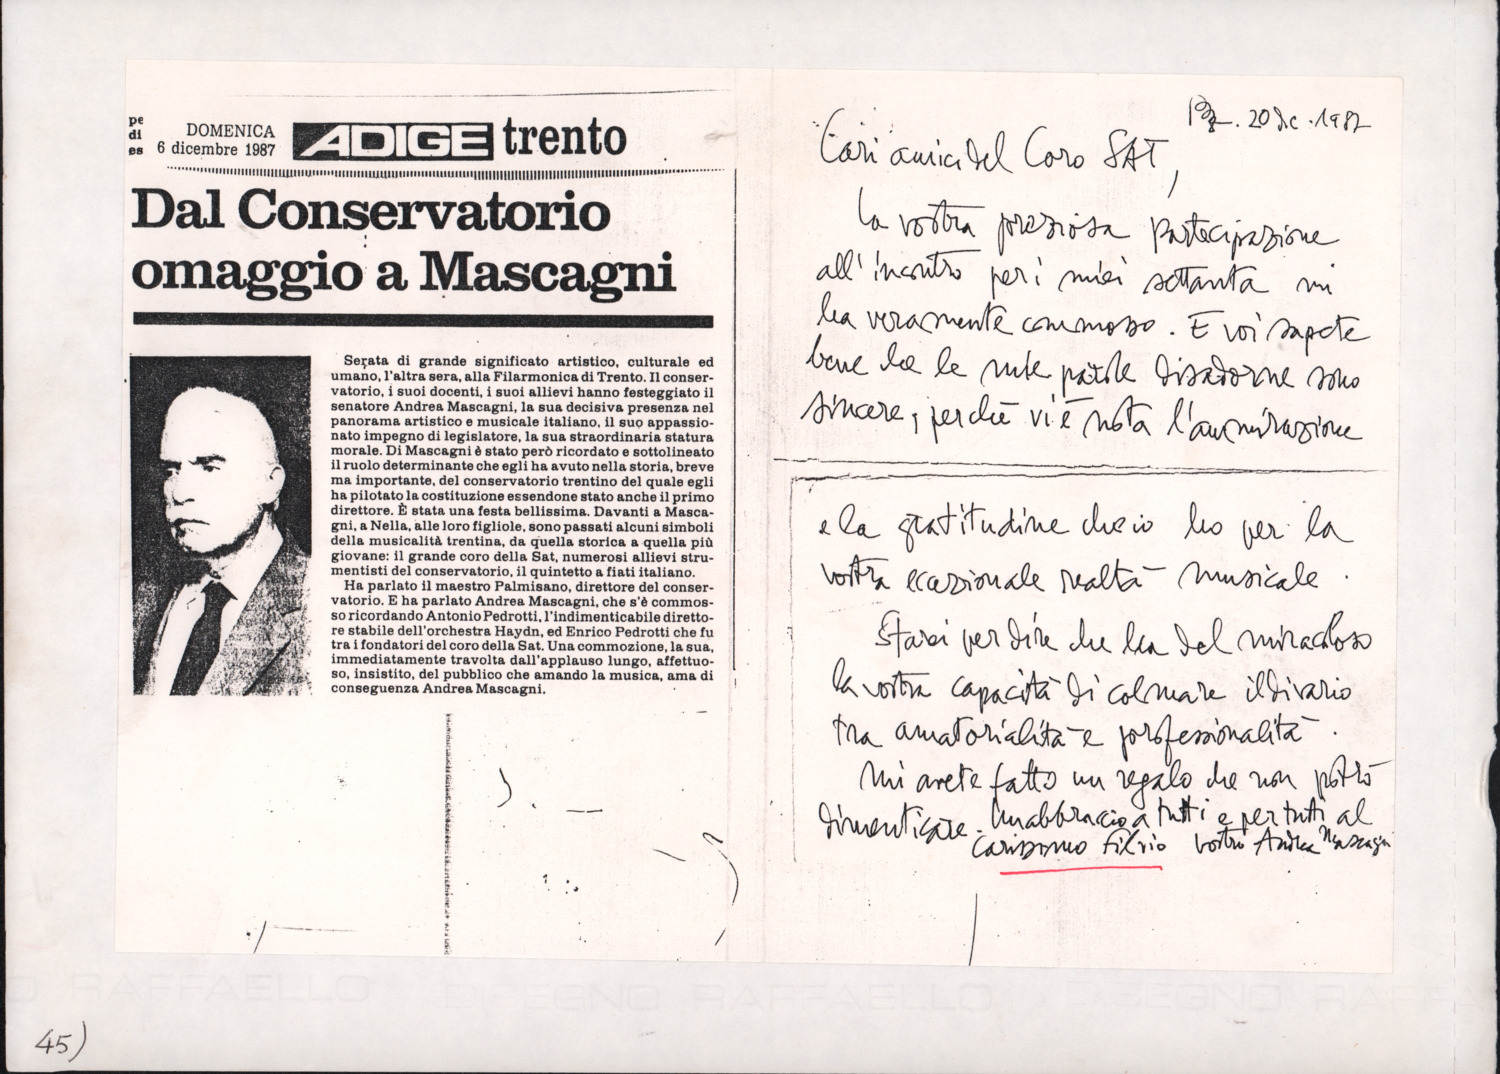 pe
di
es
DOMENICA
6 dicembre 1987
ADIGE trento
Dal Conservatorio
omaggio a Mascagni
Serata di grande significato artistico, culturale ed
umano, l'altra sera, alla Filarmonica di Trento. Il conser-
vatorio, i suoi docenti, i suoi allievi hanno festeggiato il
senatore Andrea Mascagni, la sua decisiva presenza nel
panorama artistico e musicale italiano, il suo appassio-
nato impegno di legislatore, la sua straordinaria statura
morale. Di Mascagni è stato però ricordato e sottolineato
il ruolo determinante che egli ha avuto nella storia, breve
ma importante, del conservatorio trentino del quale egli
ha pilotato la costituzione essendone stato anche il primo
direttore. È stata una festa bellissima. Davanti a Masca-
gni, a Nella, alle loro figliole, sono passati alcuni simboli
della musicalità trentina, da quella storica a quella più
giovane: il grande coro della Sat, numerosi allievi stru-
mentisti del conservatorio, il quintetto a fiati italiano.
Ha parlato il maestro Palmisano, direttore del conser-
vatorio. E ha parlato Andrea Mascagni, che s'è commos-
so ricordando Antonio Pedrotti, l'indimenticabile diretto-
re stabile dell'orchestra Haydn, ed Enrico Pedrotti che fu
tra i fondatori del coro della Sat. Una commozione, la sua,
immediatamente travolta dall'applauso lungo, affettuo-
so, insistito, del pubblico che amando la musica, ama di
conseguenza Andrea Mascagni.
Bz. 20 dic. 1987
Cari amici del Coro SAT,
la vostra preziosa partecipazione
all'incontro per i miei settanta mi
ha veramente commosso. E voi sapete
bene che le mie parole disadorne sono
sincere, perchè vi è nota l'ammirazione
e la gratitudine che io ho per la
vostra eccezionale realtà musicale.
Starei per dire che ha del miracoloso
la vostra capacità di colmare il divario
tra amatorialità e professionalità.
Mi avete fatto un regalo che non potrò
dimenticare. Un abbraccio a tutti e per tutti al
carissimo Silvio vostro Andrea Mascagni
RAFFAELLO DISEGNO RAFFAELLO DISEGNO
45)